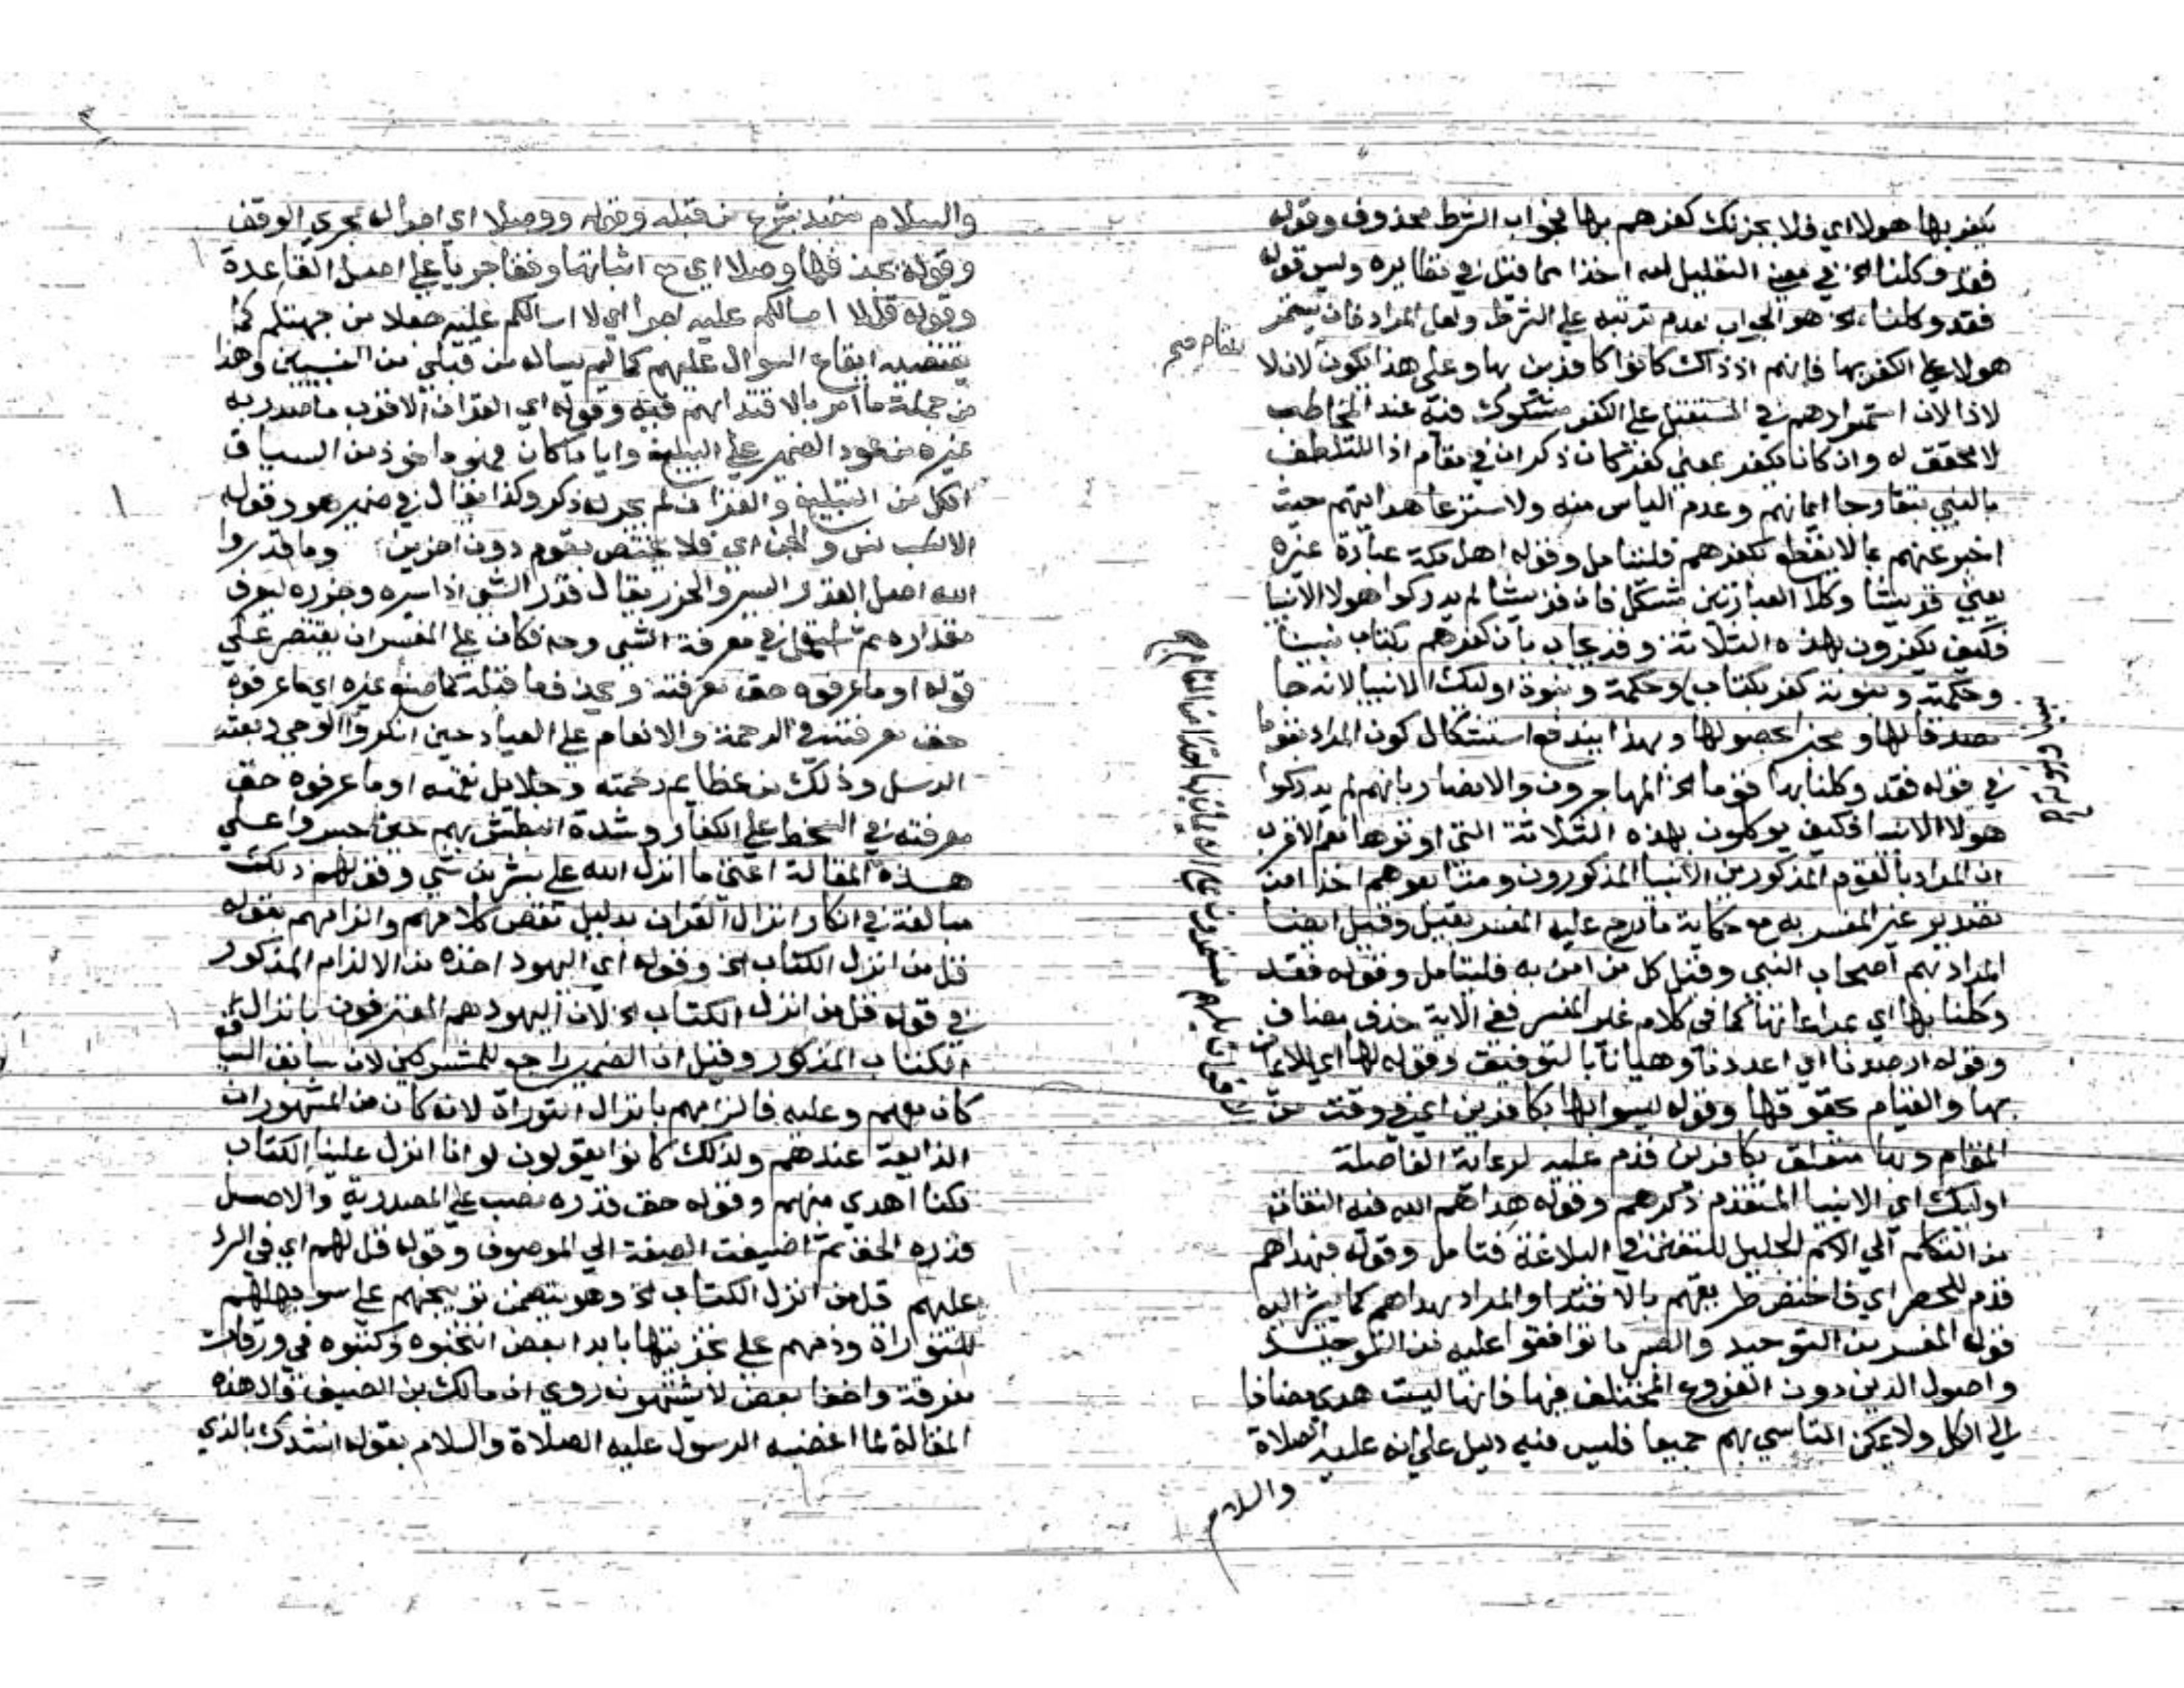 يكفر بها هولا اي فلا يحزنك كفرهم بها فجواب الشرط محذوف وقوله
فقد وكلنا الخ في معنى التعليل له اخذا مما قيل في نظايره وليس قوله
فقد وكلنا الخ هو الجواب لعدم ترتبه على الشرط ولعل المراد فان يستمر
هولا على الكفر بها فانهم اذ ذاك كانوا كافرين بها وعلى هذا تكون لان لا
لاذا لان استمرارهم في المستقبل على الكفر مشكوك فيه عند المخاطب
لا محقق له وان كانا يكفر بمعنى كفر كان ذكر ان في مقام اذا للتلطف
بالنبي ببقا رجا ايمانهم وعدم الياس منه ولاستدعا هدايتهم حيث
اخبر عنهم بما لا يقطع بكفرهم فليتامل وقوله اهل مكة عبارة غيره
يعني قريشا وكلا العبارتين مشكل فان قريشا لم يدركوا هولا الانبيا
فكيف يكفرون بهذه الثلاثة وقد يجاب بان كفرهم بكتاب نبينا
وحكمته ونبوته كفر بكتاب وحكمة ونبوة اوليك الانبيا لانه جا
مصدقا لها و مخبرا بحصولها وبهذا يندفع استشكال كون المراد بقوما
في قوله فقد وكلنا بها قوما الخ المهاجرون والانصار بانهم لم يدركوا
هولا الانبيا فكيف يوكلون بهذه الثلاثة التي اوتوها نعم الاقرب
ان المراد بالقوم المذكورين الانبيا المذكورون ومتابعوهم اخذا من
تصدير غير المفسر به مع حكاية ما درج عليه المفسر بقيل وقيل ايضا
المراد بهم اصحاب النبي وقيل كل من امن به فليتامل وقوله فقد
وكلنا بها اي بمراعاتها كما في كلام غير المفسر ففي الاية حذف مضاف
وقوله ارصدنا اي اعددنا وهيانا بالتوفيق وقوله لها اي للايمان
بها والقيام بحقوقها وقوله ليسوا بها بكافرين اي في وقت من
المقام وبها متعلق بكافرين قدم عليه لرعاية الفاصلة
اوليك اي الانبيا المتقدم ذكرهم وقوله هداهم الله فيه التفات
من التكلم الي الاسم الجليل للتفخيم البلاغة فتامل وقوله فبهداهم
قدم للحصر اي فاختص طريقهم بالاقتدا والمراد بهداهم كما يشير اليه
قول المفسر من التوحيد والصبر ما توافقوا عليه من التوحيد
واصول الدين دون الفروع المختلف فيها فانها ليست هدى مضافا
الي الكل ولا يمكن التاسي بهم جميعا فليس فيه دليل على انه عليه الصلاة
والسلام
مقام صح
والسلام متعبد بشرع من قبله وقوله ووصلا اي اجرا له مجرى الوقف
وقوله بحذفها وصلا اي مع اثباتها وقفا جريا على اصل القاعدة
وقوله قل لا اسالكم عليه اجرا اي لا اسالكم عليه جعلا من جهتكم كما
يقتضيه ايقاع السوال عليهم كما لم يساله من قبلي من النبيين وهذا
من جملة ما امر بالاقتدا بهم فيه وقوله اي القران الاقرب ما صدر به
غيره من عود الضمير على التبليغ وايا ما كان فهو ماخوذ من السياق
اذ كل من التبليغ والقران لم يجر له ذكر وكذا يقال في ضمير هو وقوله
الانس والجن اي فلا يختص بقوم دون اخرين وما قدروا
الله اصل القدر السبر والحزر يقال قدر الشي اذا سبره وحزره ليعرف
مقداره ثم استعمل في معرفة الشي وحه فكان على المفسر ان يقتصر على
قوله او ما عرفوه حق معرفته ويحذف ما قبله كما صنع غيره اي ما عرفوه
حق معرفته في الرحمة والانعام على العباد حين انكروا الوحي وبعثه
الرسل وذلك من عظايم رحمته وجلايل نعمته او ما عرفوه حق
معرفته في السخط على الكفار وشدة البطش بهم حين جسروا على
هذه المقالة اعني ما انزل الله على بشر من شي وقولهم ذلك
مبالغة في انكار انزال القران بدليل نقض كلامهم والزامهم بقوله
قل من انزل الكتاب الخ وقوله اي اليهود اخذه من الالزام المذكور
في قوله قل من انزل الكتاب الخ لان اليهود هم المعترفون بانزال
الكتاب المذكور وقيل ان الضمير راجع للمشركين لان سابق السياق
كان معهم وعليه فالزامهم بانزال التوراة لانه كان من المشهورات
الذايعة عندهم ولذلك كانوا يقولون لو انا انزل علينا الكتاب
لكنا اهدي منهم وقوله حق قدره نصب على المصدرية والاصل
قدره الحق ثم اضيفت الصفة الي الموصوف وقوله قل لهم اي في الرد
عليهم قل من انزل الكتاب الخ وهو يتضمن توبيخهم على سو جهلهم
للتوراة وذمهم على تجزيتها بابدا بعض انتخبوه وكتبوه في ورقات
مفرقة واخفا بعض لا يشتهونه روي ان مالك بن الصيف قال هذه
المقالة لما اغضبه الرسول عليه الصلاة والسلام بقوله انشدك بالذي